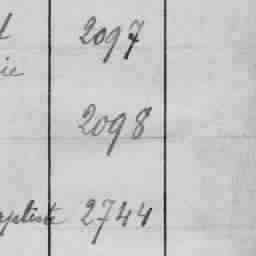 t 2097
ie
2098
aptiste 2744